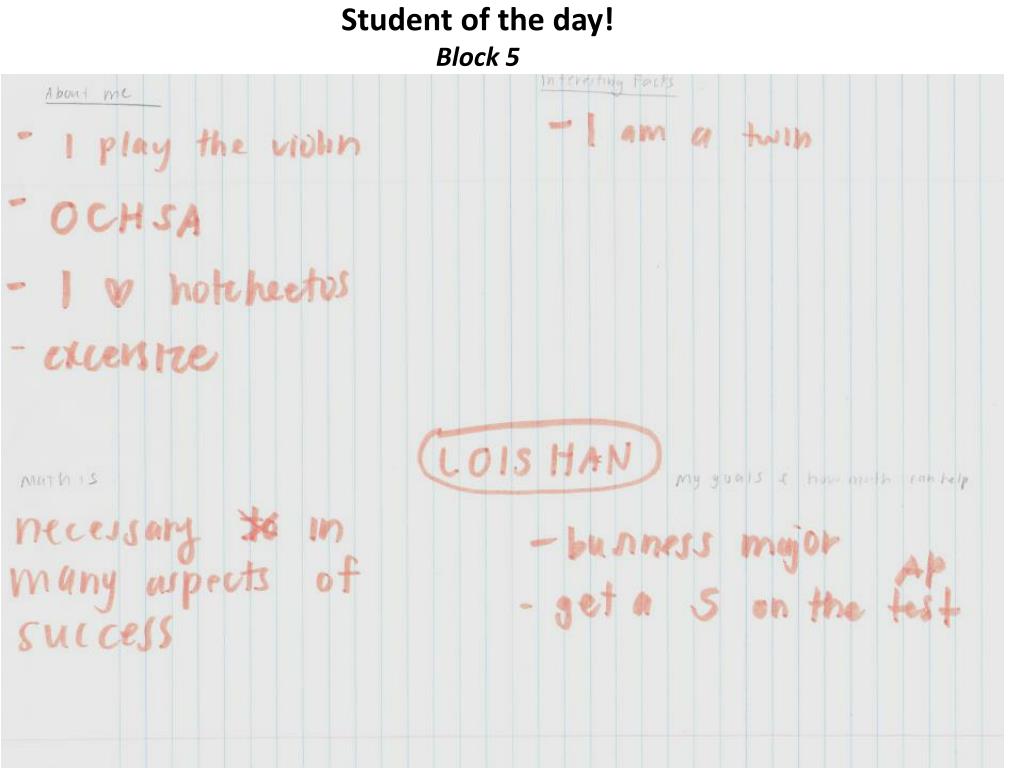 Student of the day!
Block 5
About me
- I play the violin
- OCHSA
- I ♥ hotcheetos
- excersize
Interesting Facts
- I am a twin
LOIS HAN
Math is
necessary in
many aspects of
success
My goals & how math can help
- business major
- get a 5 on the AP test